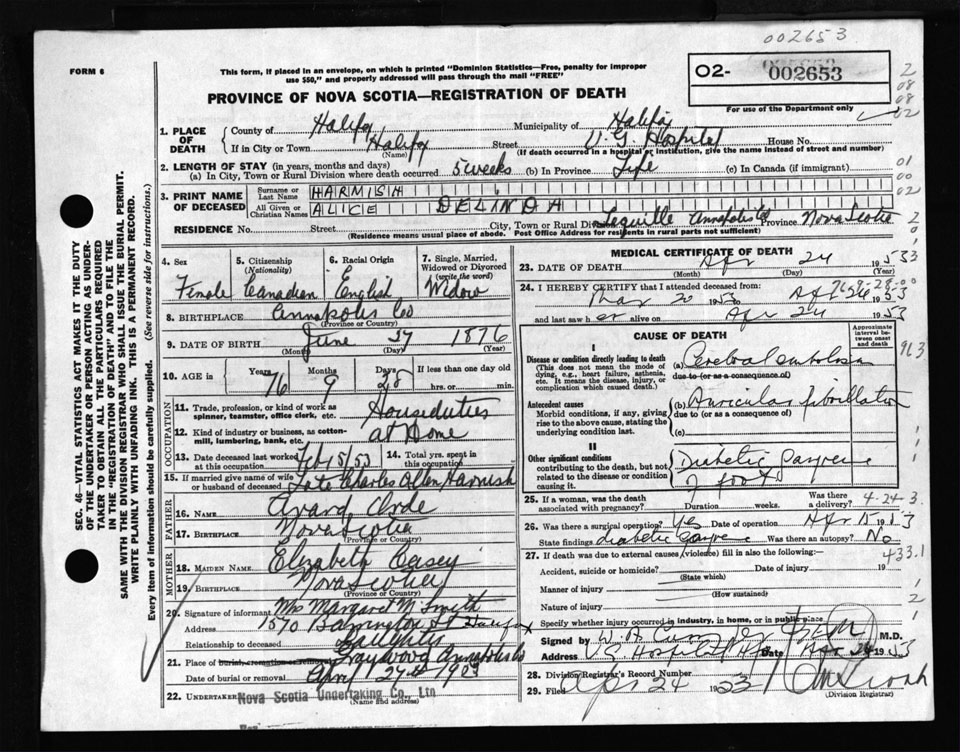 002653
FORM 6
This form, if placed in an envelope, on which is printed "Dominion Statistics—Free, penalty for improper
use $50," and properly addressed will pass through the mail "FREE"
02- 002653
For use of the Department only
PROVINCE OF NOVA SCOTIA—REGISTRATION OF DEATH
1. PLACE OF DEATH
County of Halifax Municipality of Halifax
If in City or Town Halifax (Name) Street V. G. Hospital House No.
(If death occurred in a hospital or institution, give name instead of street and number)
2. LENGTH OF STAY (in years, months and days)
(a) In City, Town or Rural Division where death occurred 5 weeks (b) In Province Life (c) In Canada (if immigrant)
3. PRINT NAME OF DECEASED
Surname or Last Name HARNISH
All Given or Christian Names ALICE DELINDA
RESIDENCE No. Street City, Town or Rural Division Lequille Annapolis Co Province Nova Scotia
(Residence means usual place of abode. Post Office Address for residents in rural parts not sufficient)
4. Sex Female
5. Citizenship (Nationality) Canadian
6. Racial Origin English
7. Single, Married, Widowed or Divorced (write the word) Widow
8. BIRTHPLACE Annapolis Co
(Province or Country)
9. DATE OF BIRTH June 27 1876
(Month) (Day) (Year)
10. AGE Years 76 Months 9 Days 28 If less than one day old hrs. or min.
OCCUPATION
11. Trade, profession, or kind of work as spinner, teamster, office clerk, etc. Houseduties
12. Kind of industry or business, as cotton-mill, lumbering, bank, etc. at Home
13. Date deceased last worked at this occupation Feb 15/53
14. Total yrs. spent in this occupation
15. If married give name of wife or husband of deceased Late Charles Allen Harnish
FATHER
16. Name Avard Clyde
17. Birthplace Nova Scotia
(Province or Country)
MOTHER
18. Maiden Name Elizabeth Casey
19. Birthplace Nova Scotia
(Province or Country)
20. Signature of informant Mrs Margaret M Smith
Address 1570 Barrington St Halifax
Relationship to deceased Daughter
21. Place of burial, cremation or removal Graywood Annapolis Co
Date of burial or removal April 27th 1953
22. UNDERTAKER Nova Scotia Undertaking Co., Ltd
(Name and address)
MEDICAL CERTIFICATE OF DEATH
23. DATE OF DEATH Apr 24 1953
(Month) (Day) (Year)
24. I HEREBY CERTIFY that I attended deceased from:
Mar 20 1953 Apr 24 1953
and last saw her alive on Apr 24 1953
CAUSE OF DEATH
Approximate interval between onset and death
I
Disease or condition directly leading to death
(This does not mean the mode of dying, e.g., heart failure, asthenia, etc. It means the disease, injury, or complication which caused death.)
(a) Cerebral embolism
due to (or as a consequence of)
Antecedent causes
Morbid conditions, if any, giving rise to the above cause, stating the underlying condition last.
(b) Auricular fibrillation
due to (or as a consequence of)
(c)
II
Other significant conditions
contributing to the death, but not related to the disease or condition causing it.
Diabetic Gangrene
of foot
25. If a woman, was the death associated with pregnancy? Duration weeks. Was there a delivery?
4-24-3
26. Was there a surgical operation? Yes Date of operation Apr 15 1953
State findings diabetic gangrene Was there an autopsy? No
27. If death was due to external causes (violence) fill in also the following:—
433.1
Accident, suicide or homicide? Date of injury 19
(State which)
Manner of injury
(How sustained)
Nature of injury
Specify whether injury occurred in industry, in home, or in public place
Signed by M.D.
Address V.G. Hospital Hfx Date Apr 24 1953
28. Division Registrar's Record Number
29. Filed Apr 24 1953
(Division Registrar)
SEC. 46—VITAL STATISTICS ACT MAKES IT THE DUTY
OF THE UNDERTAKER OR PERSON ACTING AS UNDER-
TAKER TO OBTAIN ALL THE PARTICULARS REQUIRED
IN THE "REGISTRATION OF DEATH" AND TO FILE THE
SAME WITH THE DIVISION REGISTRAR WHO SHALL ISSUE THE BURIAL PERMIT.
WRITE PLAINLY WITH UNFADING INK. THIS IS A PERMANENT RECORD.
Every item of information should be carefully supplied. (See reverse side for instructions.)